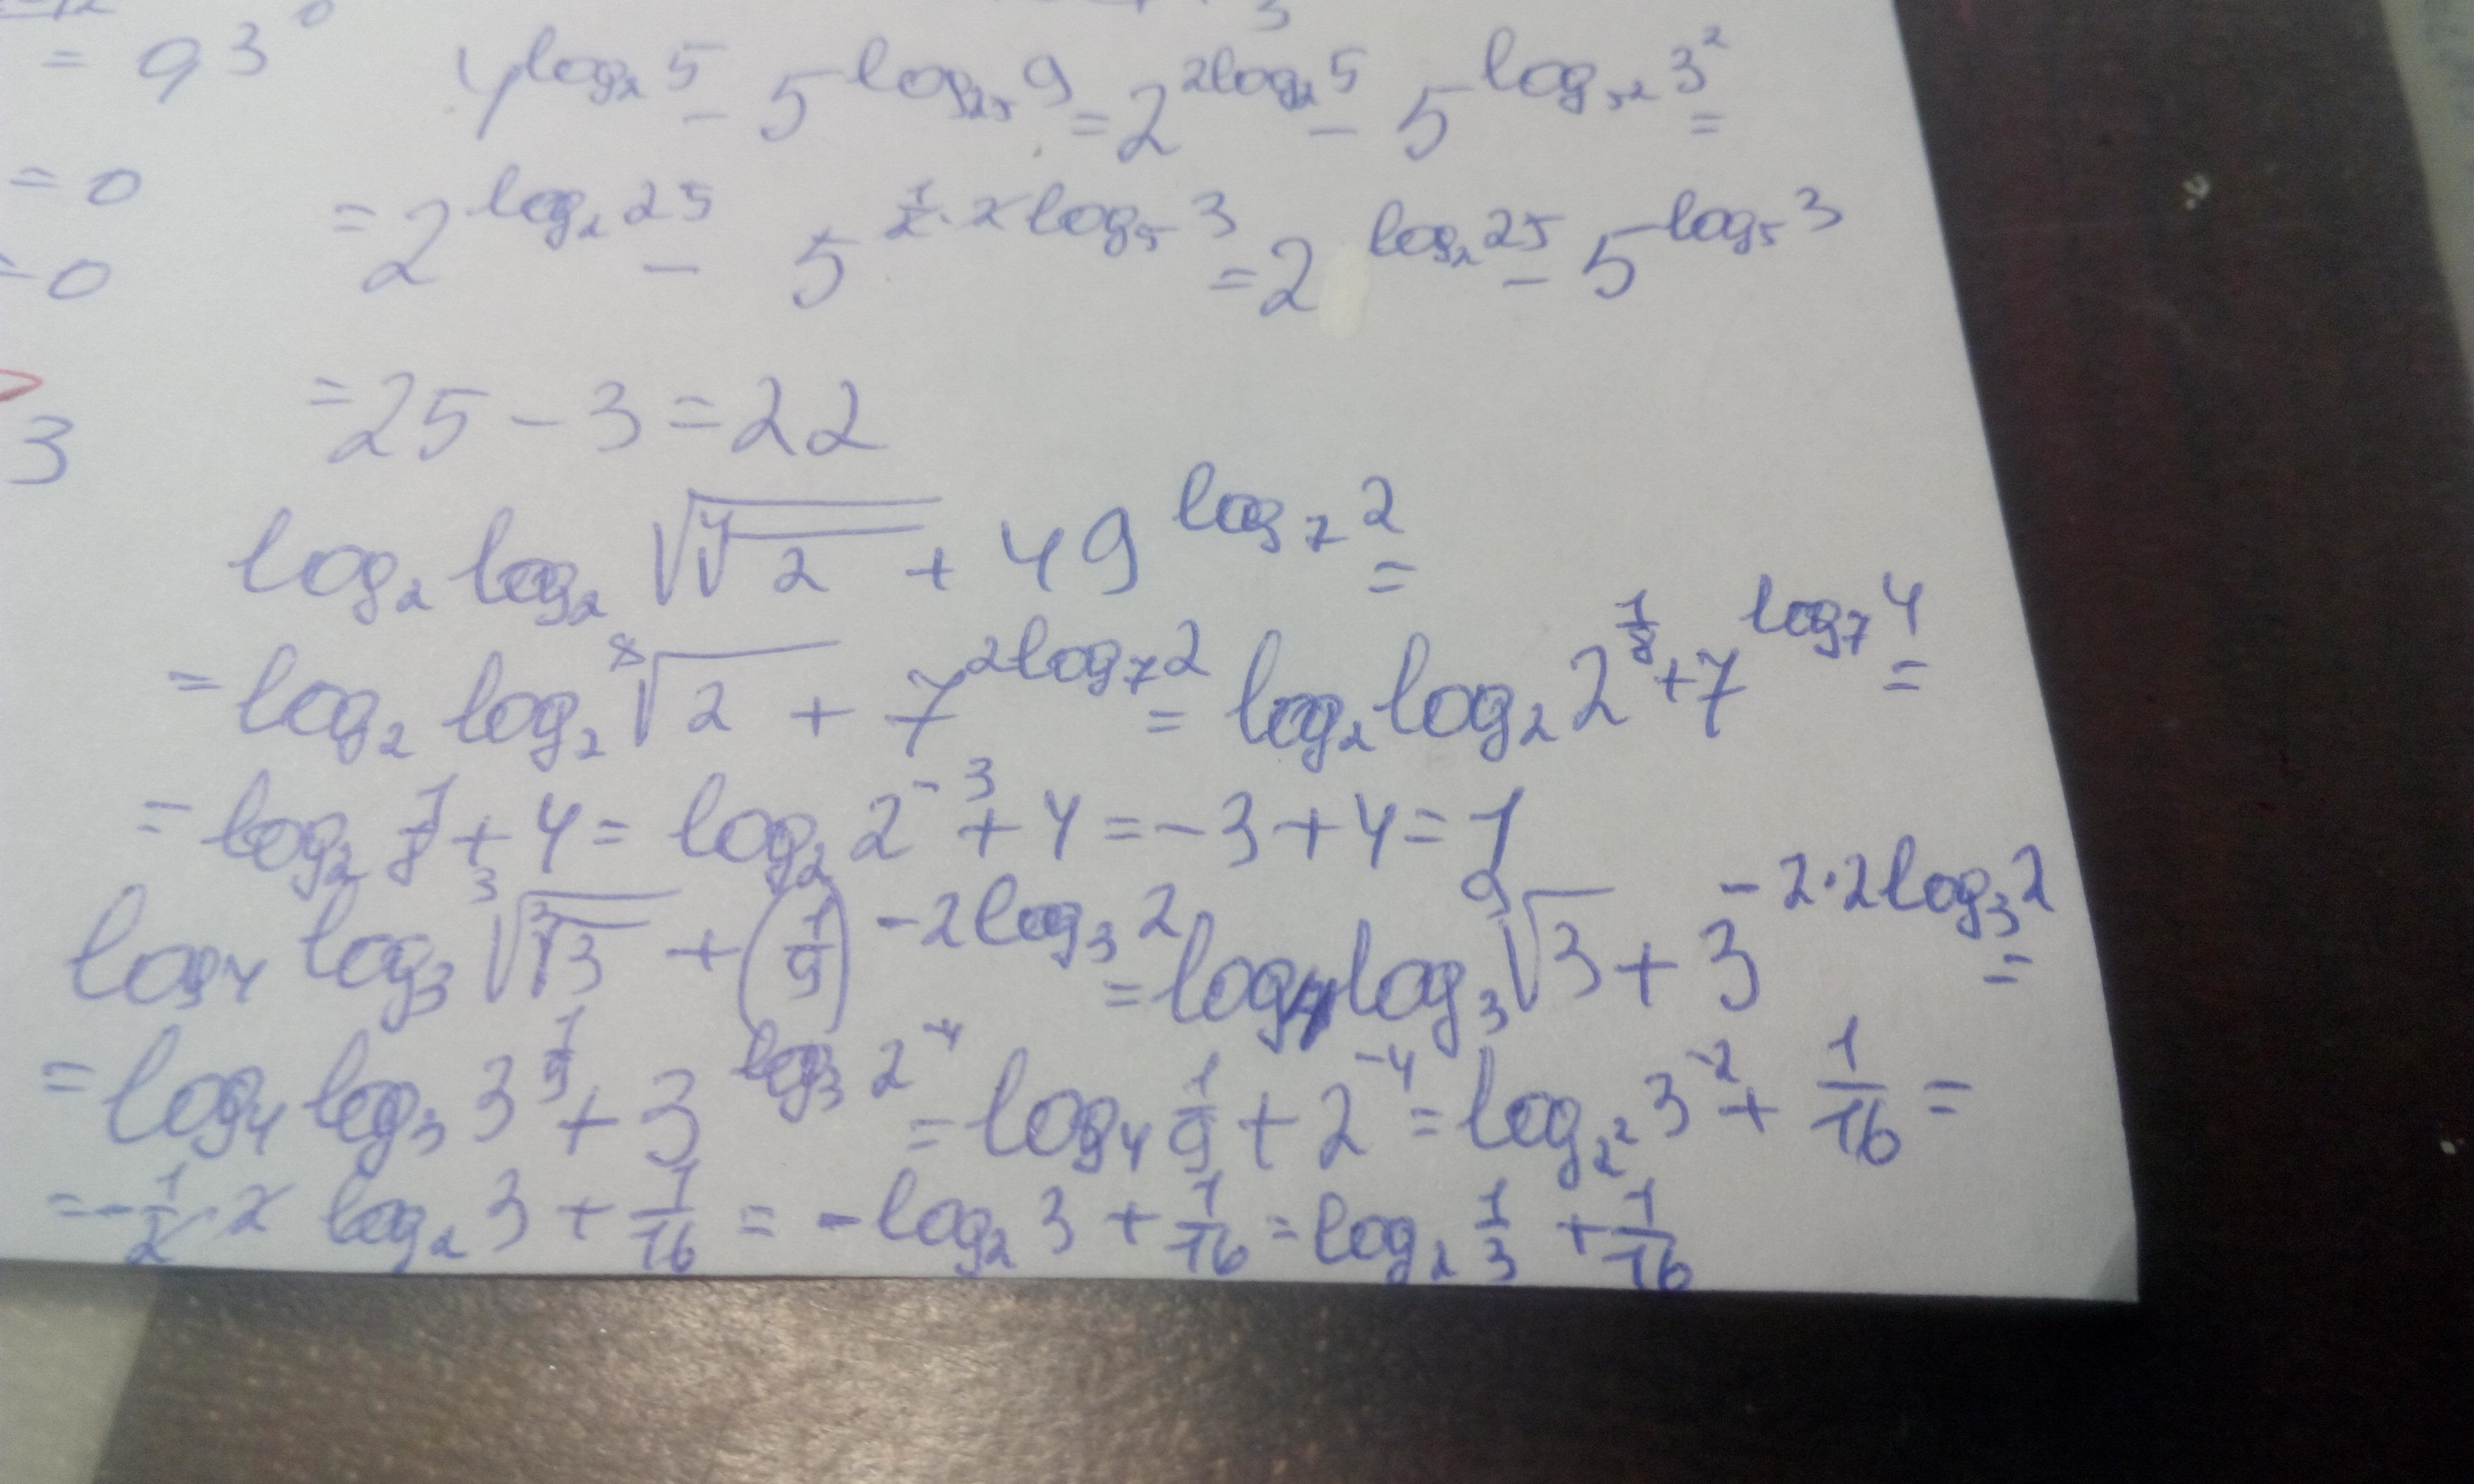 = 93⁰
4^{log₂5} - 5^{log₂₅9} = 2^{2log₂5} - 5^{log_{5²}3²} =
= 0
= 2^{log₂25} - 5^{½·2log₅3} = 2^{log₂25} - 5^{log₅3}
= 0
= 25 - 3 = 22
3
log₂ log₂ √(∜2) + 49^{log₇2} =
= log₂ log₂ ⁸√2 + 7^{2log₇2} = log₂ log₂ 2^{1/8} + 7^{log₇4} =
= log₂ 1/8 + 4 = log₂ 2^{-3} + 4 = -3 + 4 = 1
log₄ log₃ ∛(∛3) + (1/9)^{-2log₃2} = log₄ log₃ ⁹√3 + 3^{-2·2log₃2} =
= log₄ log₃ 3^{1/9} + 3^{log₃2^{-4}} = log₄ 1/9 + 2^{-4} = log_{2²} 3^{-2} + 1/16 =
= -1/2·2 log₂ 3 + 1/16 = -log₂ 3 + 1/16 = log₂ 1/3 + 1/16